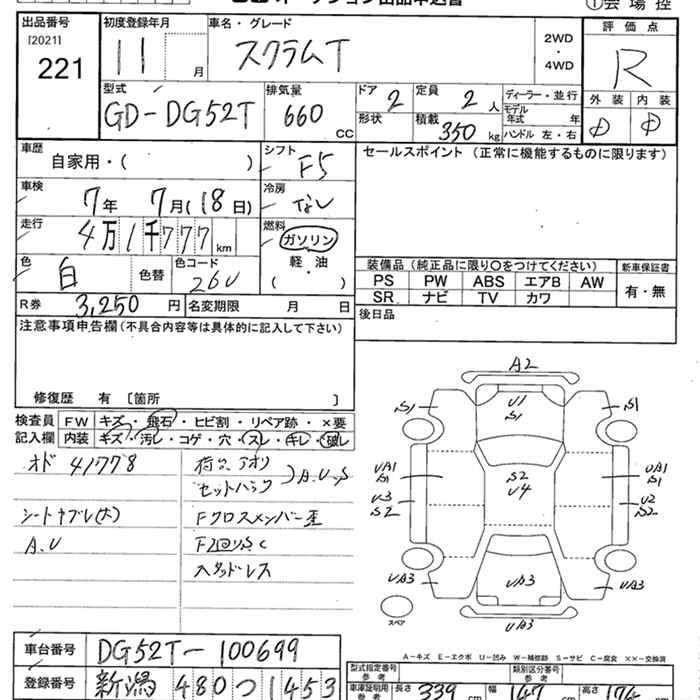 出品番号 初度登録年月 車名・グレード 評価点
[2021] 221 11 月 スクラムT 2WD・4WD R
型式 GD-DG52T 排気量 660 cc ドア 2 定員 2 人 ディーラー・並行 外装 内装
形状 積載 350 kg モデル年式 年 ハンドル 左・右
車歴 自家用・( ) シフト F5 セールスポイント (正常に機能するものに限ります)
車検 7年 7月(18日) 冷房 なし
走行 4万1千777 km 燃料 ガソリン
色 白 色替 色コード 26U 軽・油 ( )
装備品 (純正品に限り○をつけてください) 新車保証書
PS PW ABS エアB AW 有・無
SR ナビ TV カワ
R券 3,250 円 名変期限 月 日 後日品
注意事項申告欄(不具合内容等は具体的に記入して下さい)
修復歴 有 [箇所 ]
検査員 FW キズ・飛石・ヒビ割・リペア跡・×要
記入欄 内装 キズ・汚レ・コゲ・穴・スレ・キレ・破レ
オド 41778
シートヤブレ(大)
A.U
Fクロスメンバー歪
A2
U1
S1
S1 S1
UA1
S1
S2
U4
UA1
S1
U3
S2
U2
S2
UA3 UA3 UA3
UA3
スペア
A-キズ E-エクボ U-凹み W-補修跡 S-サビ C-腐食 XX-交換済
車台番号 DG52T-100699
登録番号 新潟 480 つ 1453
型式指定番号 参考 類別区分番号 参考
車庫証明用 参考 長さ 339 cm 幅 高さ